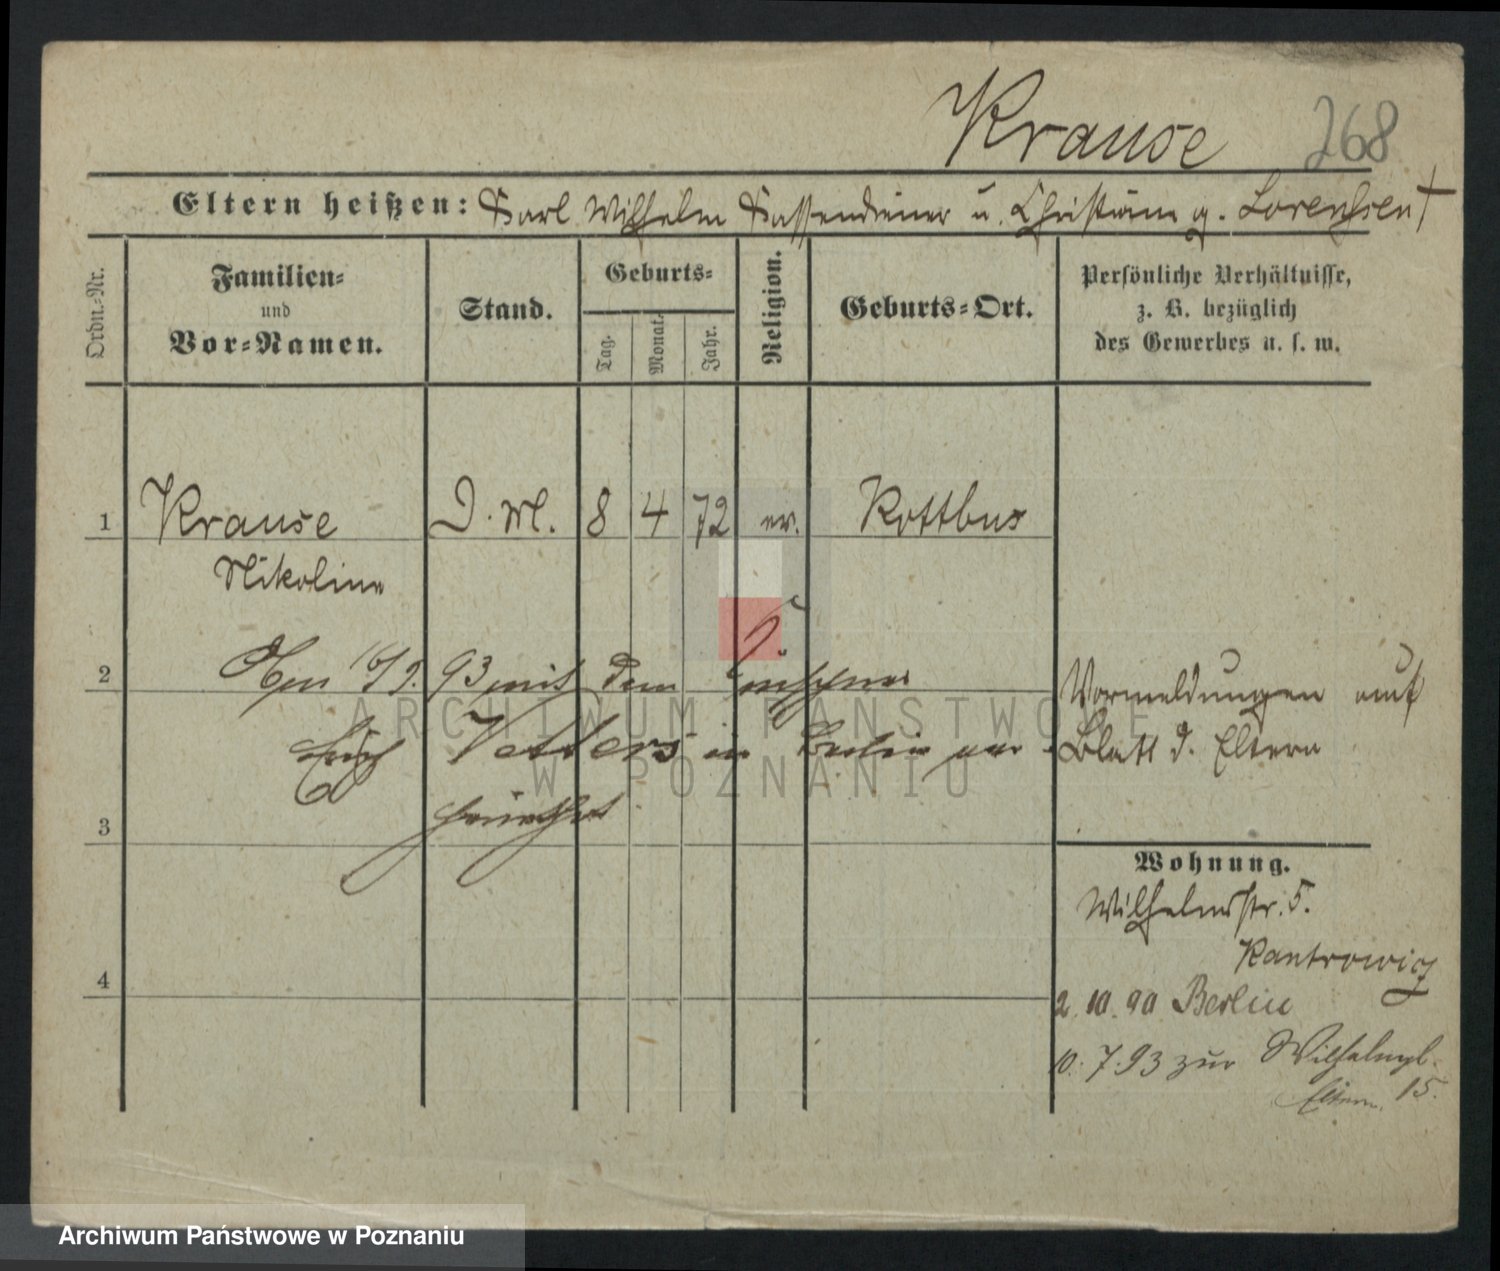 Krause 268
Eltern heißen: Karl Wilhelm Kassendiener u. Christiane g. Lorenhsen †
Ordn.-Nr.
Familien-
und
Vor-Namen.
Stand.
Geburts-
Tag. Monat. Jahr.
Religion.
Geburts-Ort.
Persönliche Verhältnisse,
z. B. bezüglich
des Gewerbes u. s. w.
1 Krause D. M. 8 4 72 ev. Kottbus
Nikoline
2 16/9. 93 mit dem
Vetters in Berlin ver
heirathet
3
4
Vormeldungen auf
Blatt d. Eltern
Wohnung.
Wilhelmstr. 5.
Kantrowicz
2. 10. 90 Berlin
10. 7. 93 zur Wilhelmpl.
Eltern. 15.
ARCHIWUM PAŃSTWOWE
W POZNANIU
Archiwum Państwowe w Poznaniu